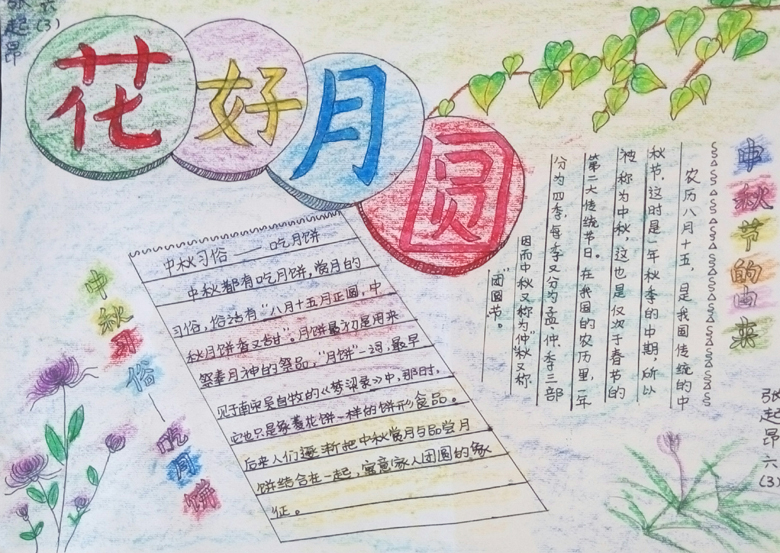 张起昂
六(3)
花好月圆
中秋节的由来
农历八月十五，是我国传统的中
秋节，这时是一年秋季的中期，所以
被称为中秋，这也是仅次于春节的
第二大传统节日。在我国的农历里，一年
分为四季，每季又分为孟、仲、季三部
因而中秋又称为“仲”秋又称
“团圆节。
中秋习俗——吃月饼
中秋习俗——吃月饼
中秋都有吃月饼，赏月的
习俗，俗话有“八月十五月正圆，中
秋月饼香又甜”。月饼最初是用来
祭奉月神的祭品，“月饼”一词，最早
见于南宋吴自牧的《梦梁录》中，那时，
它也只是象菱花饼一样的饼形食品。
后来人们逐渐把中秋赏月与品尝月
饼结合在一起，寓意家人团圆的象
征。
张起昂六(3)